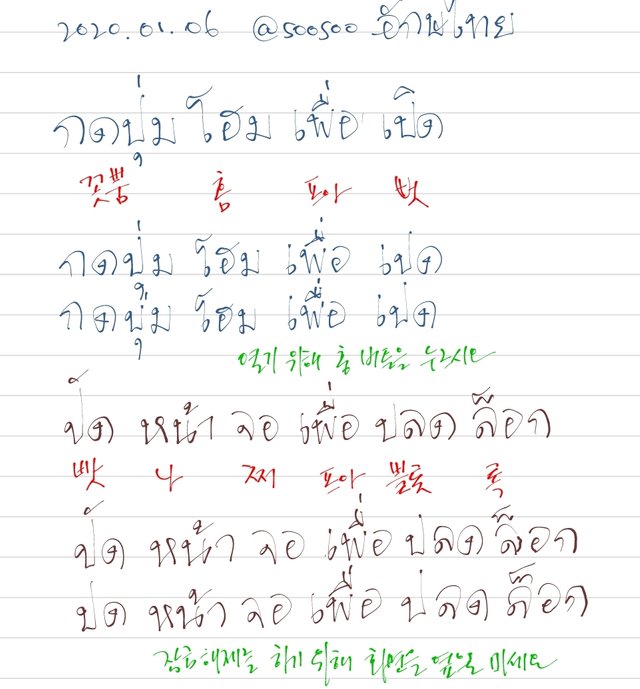 2020.01.06 @soosoo อ่านไทย
กดปุ่ม โฮม เพื่อ เปิด
꼿뿜 홈 프아 뻣
กดปุ่ม โฮม เพื่อ เปด
กดปุ่ม โฮม เพื่อ เปด
열기 위해 홈 버튼을 누르시오
ปัด หน้า จอ เพื่อ ปลด ล็อก
빳 나 쩌 프아 쁠롯 록
ปัด หน้า จอ เพื่อ ปลด ล็อก
ปด หน้า จอ เพื่อ ปลด ล็อก
잠금해제를 하기 위해 화면을 옆으로 미세요